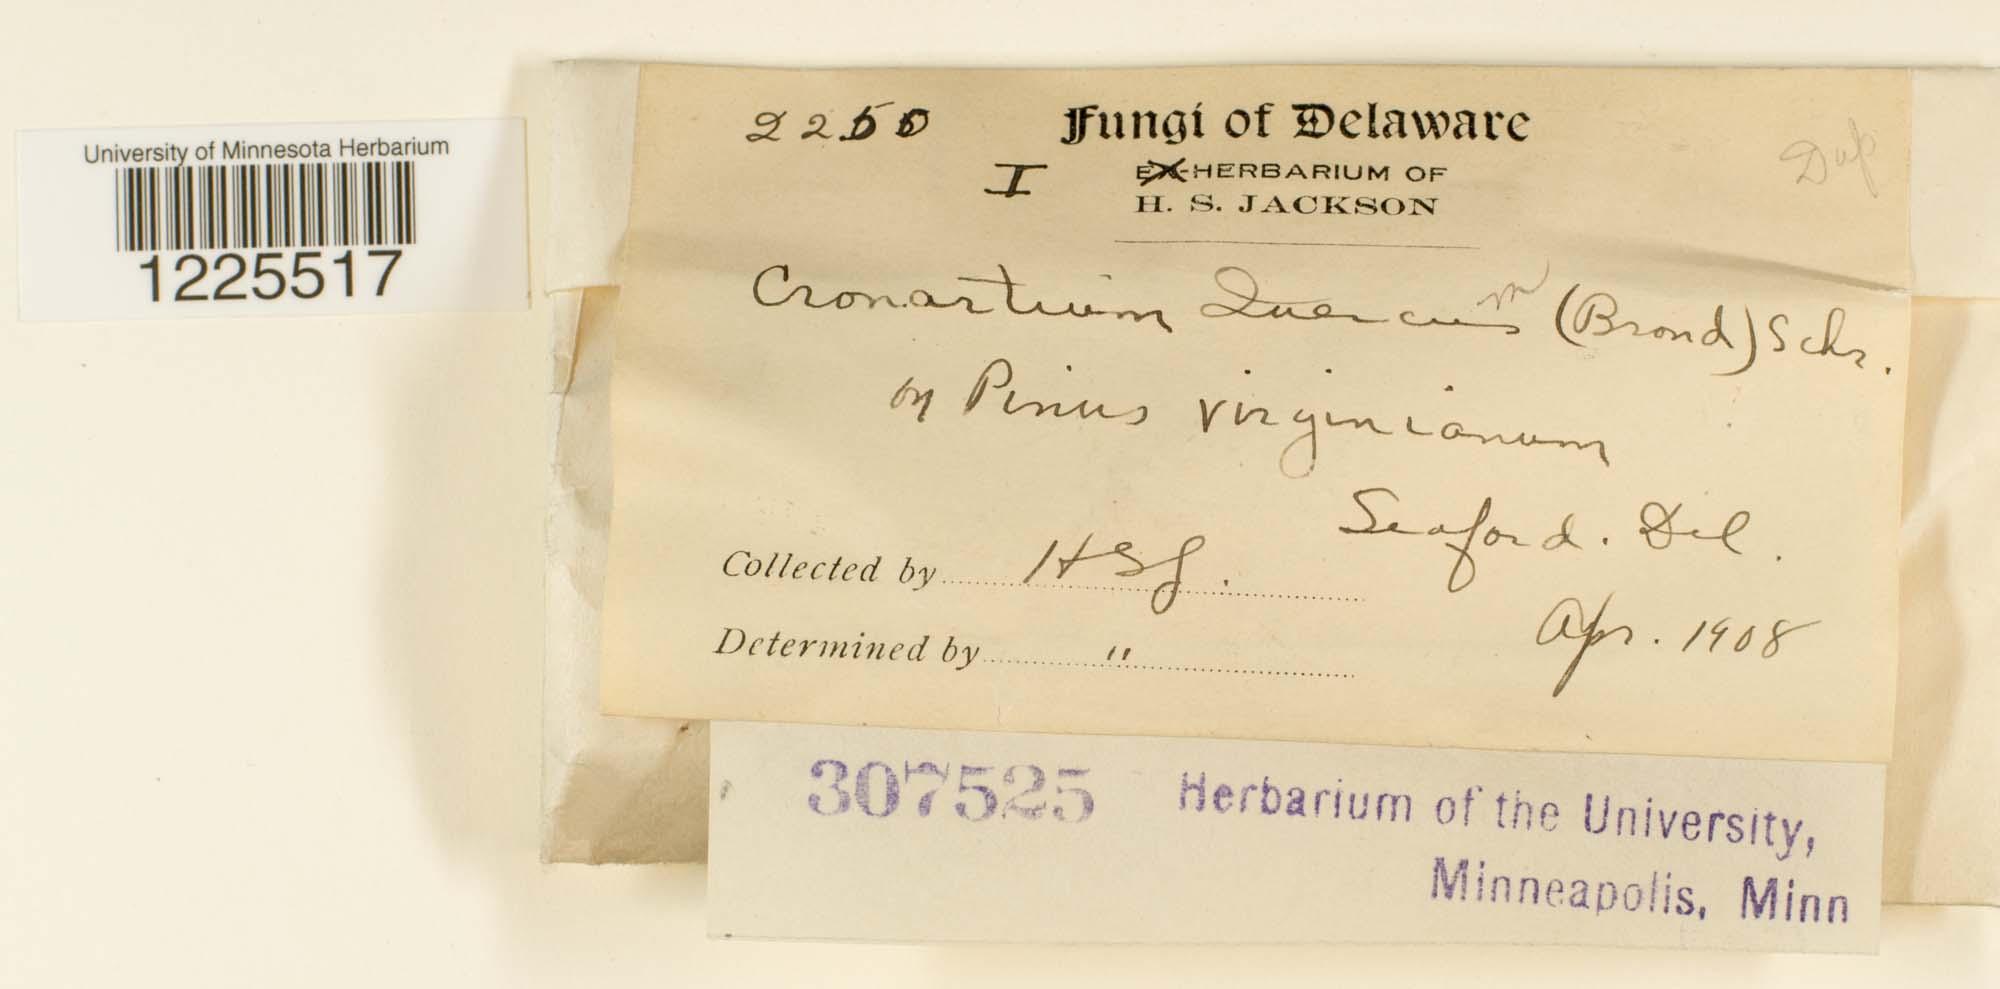 University of Minnesota Herbarium
1225517
2250
Fungi of Delaware
Dup
I
EX-HERBARIUM OF
H. S. JACKSON
Cronartium Quercus (Brond) Schr.
m
on Pinus virginianum
Seaford. Del.
Collected by HSJ.
Apr. 1908
Determined by "
307525
Herbarium of the University,
Minneapolis, Minn